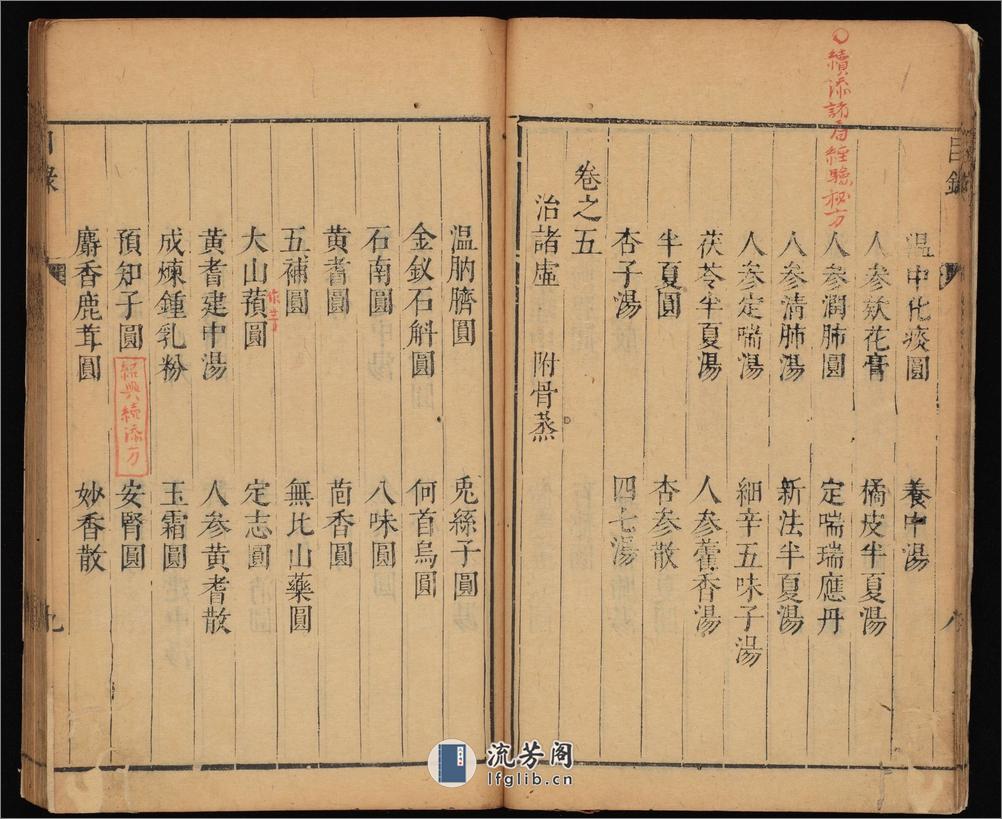 續添諸局經驗秘方
目錄
溫中化痰圓 養中湯
人參欵花膏 橘皮半夏湯
人參潤肺圓 定喘瑞應丹
八參清肺湯 新法半夏湯
人參定喘湯 細辛五味子湯
茯苓半夏湯 人參藿香湯
半夏圓 杏參散
杏子湯 四七湯
卷之五
治諸虛 附骨蒸
八
溫肭臍圓 兎絲子圓
金釵石斛圓 何首烏圓
石南圓 八味圓
黃耆圓 茴香圓
五補圓 無比山藥圓
大山蕷圓 定志圓
黃耆建中湯 人參黃耆散
成煉鍾乳粉 玉霜圓
預知子圓 安腎圓
紹興續添方
麝香鹿茸圓 妙香散
目錄
九
流芳阁
lfglib.cn